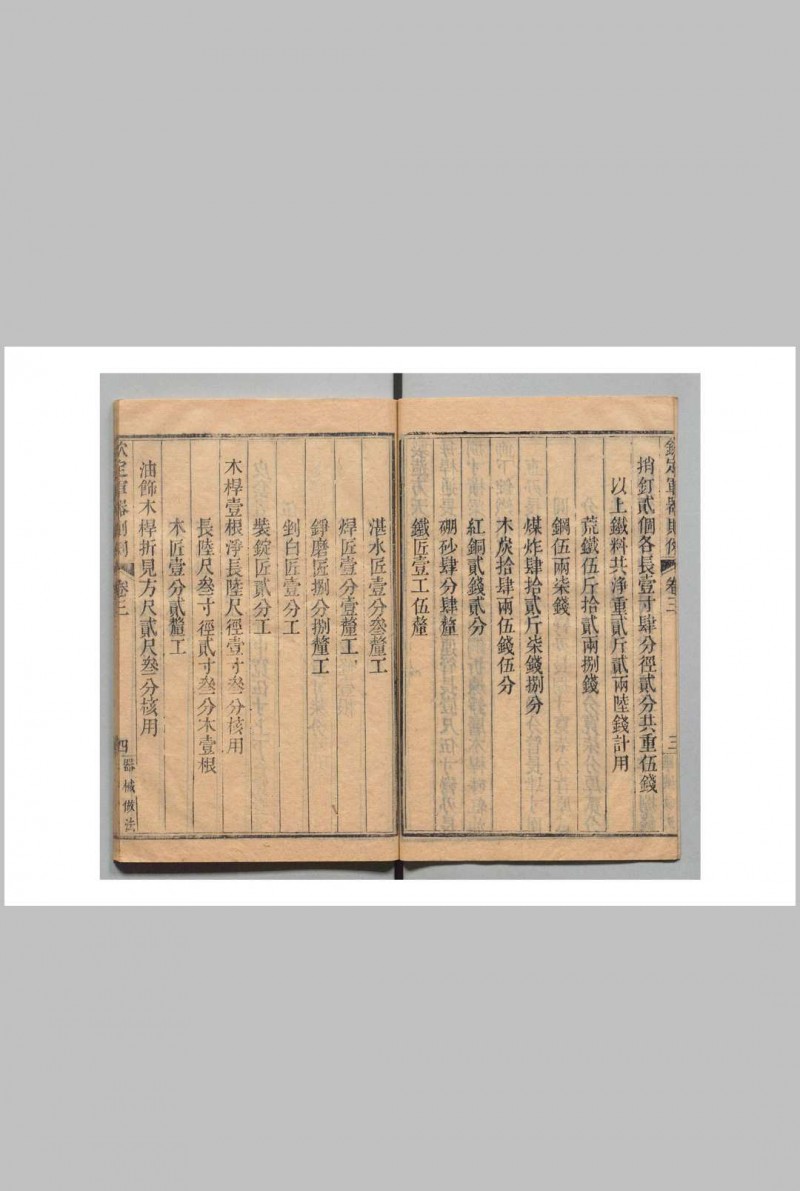 欽定軍器則例
卷三
三
捎釘貳個各長壹寸肆分徑貳分共重伍錢
以上鐵料共淨重貳斤貳兩陸錢計用
荒鐵伍斤拾貳兩捌錢
鋼伍兩柒錢
煤炸肆拾貳斤柒錢捌分
木炭拾肆兩伍錢伍分
紅銅貳錢貳分
硼砂肆分肆釐
鐵匠壹工伍釐
湛水匠壹分叁釐工
焊匠壹分壹釐工
錚磨匠捌分捌釐工
剉白匠壹分工
裝錠匠貳分工
木桿壹根淨長陸尺徑壹寸叁分核用
長陸尺叁寸徑貳寸叁分木壹根
木匠壹分貳釐工
油飾木桿折見方尺貳尺叁分核用
欽定軍器則例
卷三
四
器械做法